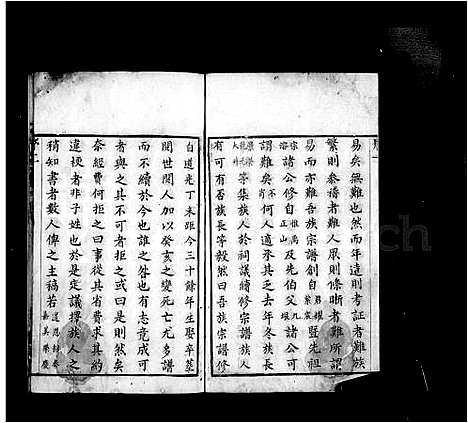 易矣無難也然而年遠則考證者難族
繁則參禱者難人眾則條晰者難所謂
易而亦難吾族宗譜創自 暨先祖
諸公修自 及先伯父 諸公可
謂難矣 何人適承其乏去年冬族長
等集族人於祠議續修宗譜族人
有可有否族長等毅然曰吾族宗譜修
自道光丁未距今三十餘年生娶卒葬
閱世閱人加以癸亥之變死亡尤多譜
而不續於今也誰之咎也有志竟成可
者與之其不可者或曰是則然矣
奈經費何拒之曰事從其省費求其約
違梗者非子姓也於是定議擇族人之
稍知書者數人俾之主稿若